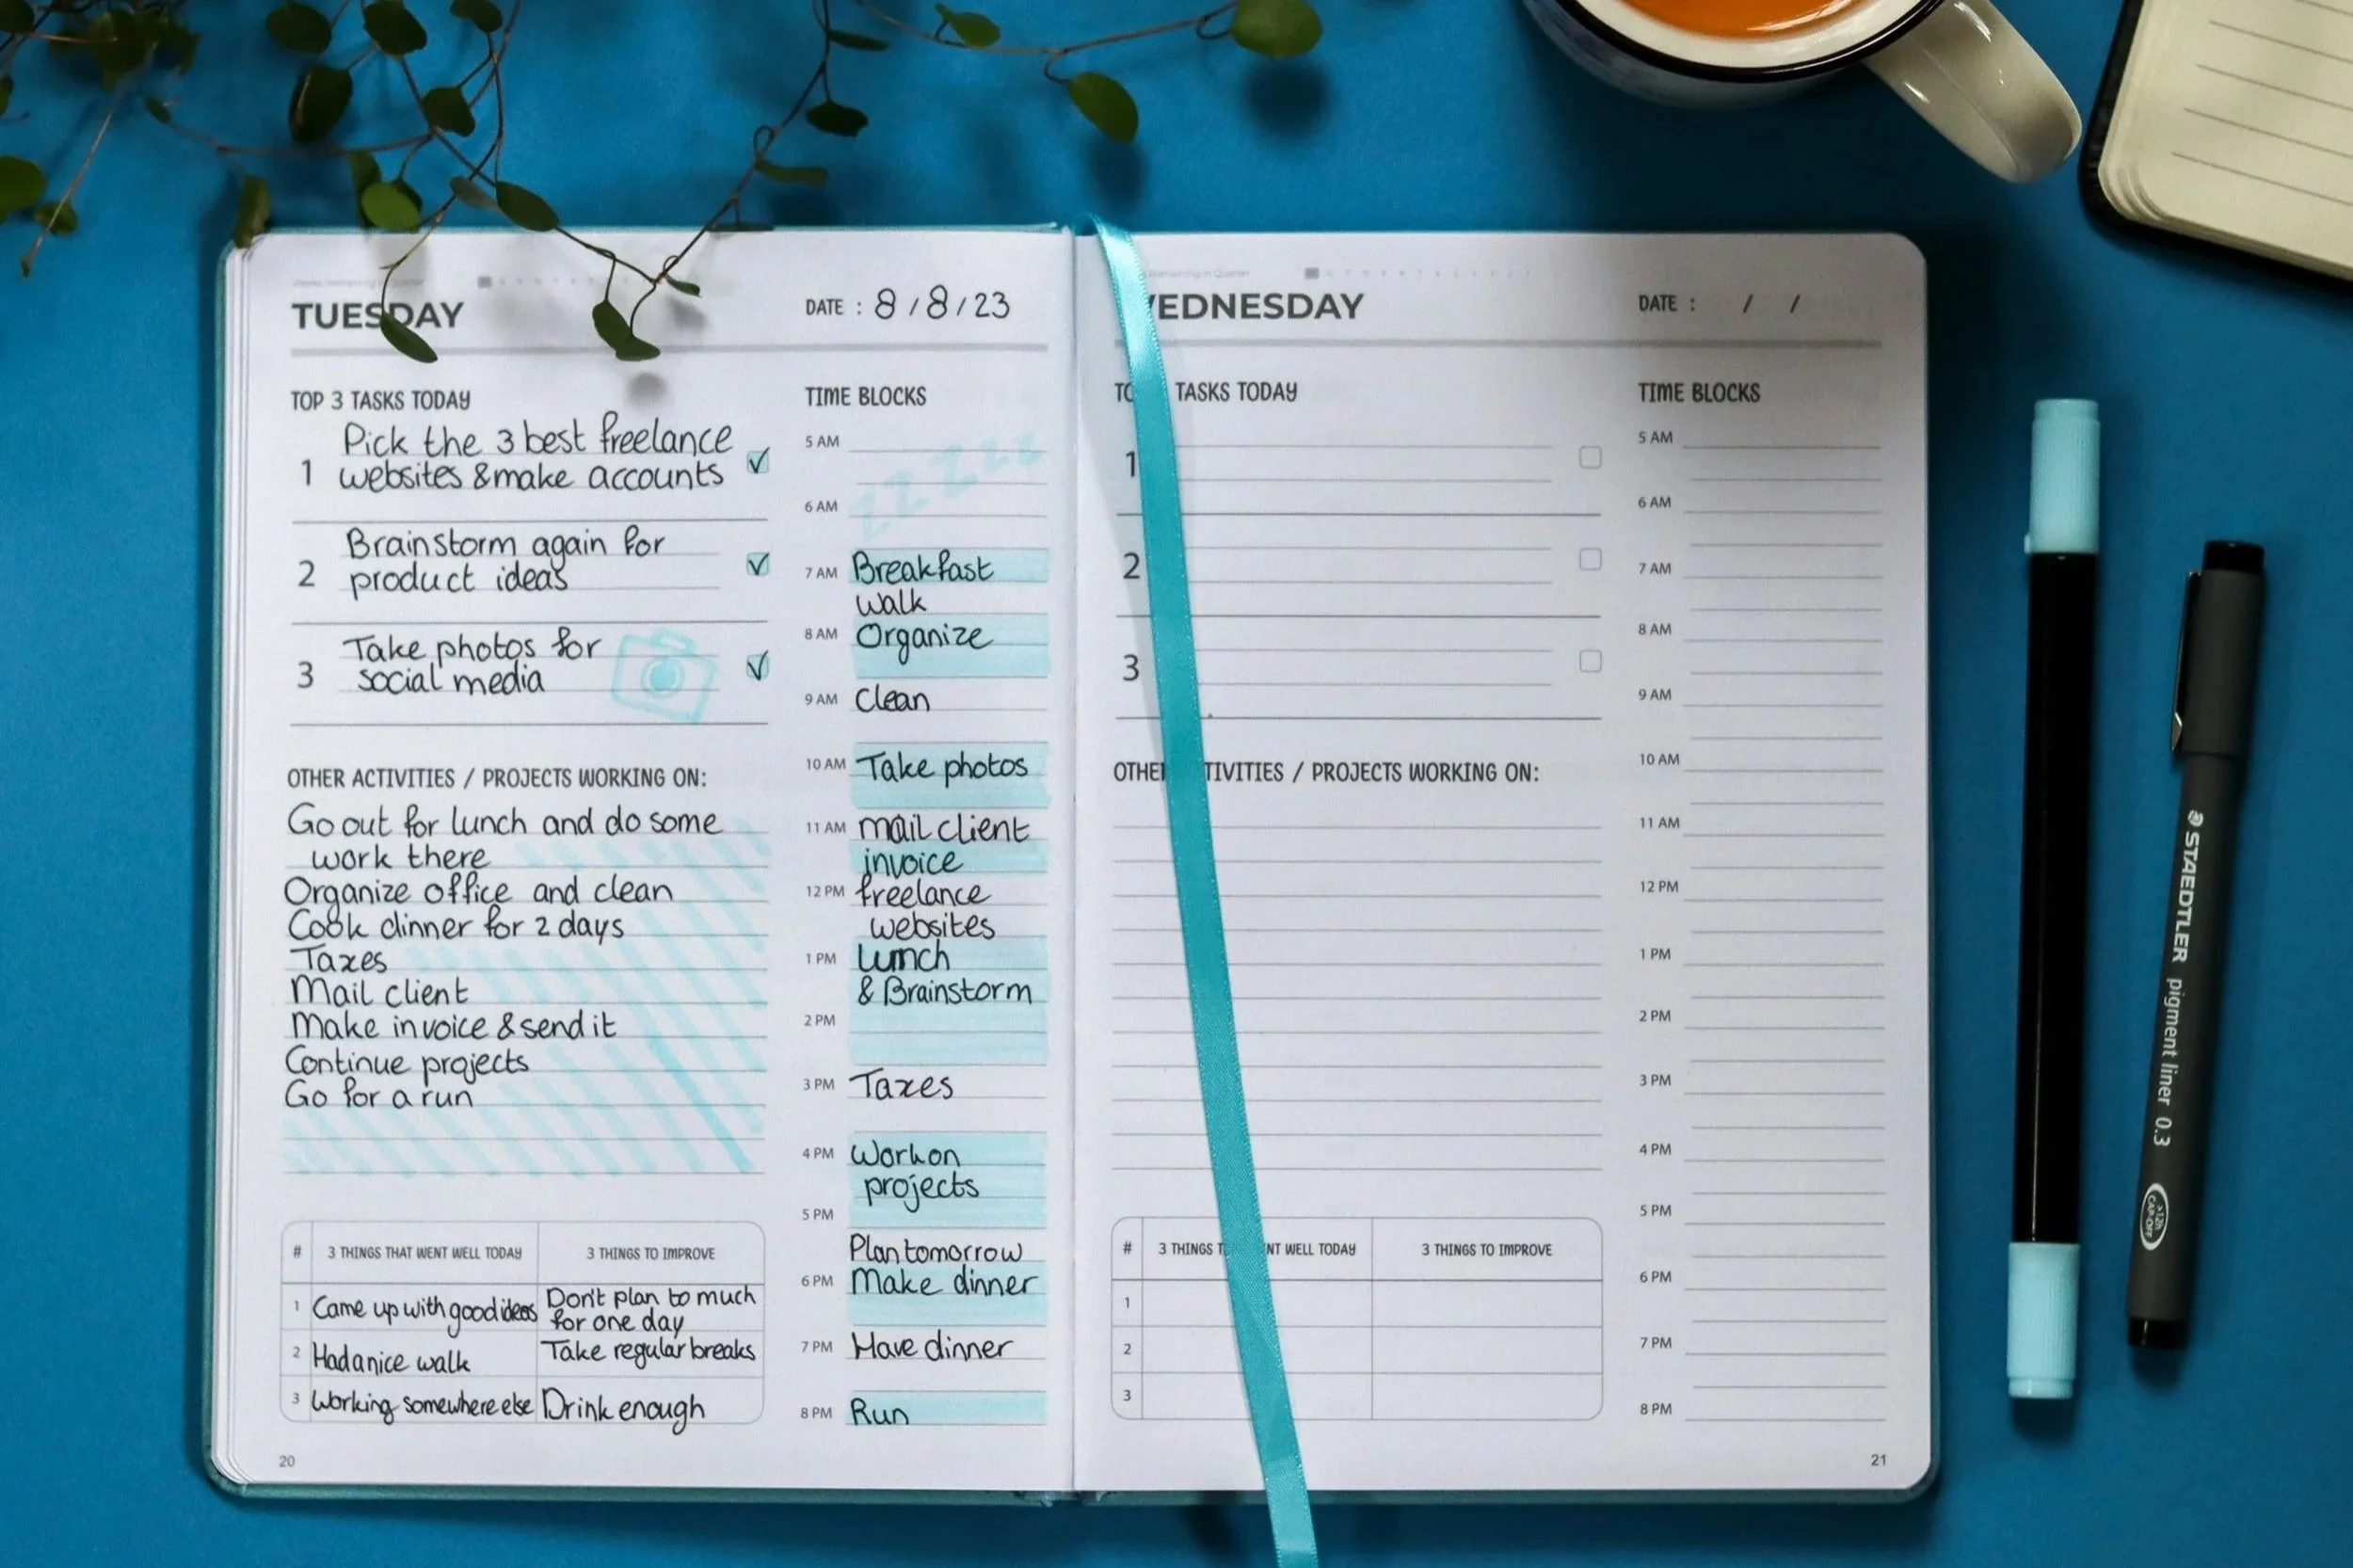 TUESDAY
DATE : 8/8/23
TOP 3 TASKS TODAY
1 Pick the 3 best freelance
websites & make accounts
2 Brainstorm again for
product ideas
3 Take photos for
social media
OTHER ACTIVITIES / PROJECTS WORKING ON:
Go out for lunch and do some
work there
Organize office and clean
Cook dinner for 2 days
Taxes
Mail client
Make invoice & send it
Continue projects
Go for a run
# 3 THINGS THAT WENT WELL TODAY 3 THINGS TO IMPROVE
1 Came up with good ideas Don't plan to much
for one day
2 Had a nice walk Take regular breaks
3 Working somewhere else Drink enough
20
TIME BLOCKS
zzzzzz
5 AM
6 AM
7 AM Breakfast
walk
8 AM Organize
9 AM Clean
10 AM Take photos
11 AM mail client
invoice
12 PM freelance
websites
1 PM Lunch
& Brainstorm
2 PM
3 PM Taxes
4 PM Work on
projects
5 PM
Plan tomorrow
6 PM Make dinner
7 PM Have dinner
8 PM Run
Remaining in Quarter
WEDNESDAY
DATE : / /
TO TASKS TODAY
1
2
3
OTHE TIVITIES / PROJECTS WORKING ON:
# 3 THINGS T NT WELL TODAY 3 THINGS TO IMPROVE
1
2
3
TIME BLOCKS
5 AM
6 AM
7 AM
8 AM
9 AM
10 AM
11 AM
12 PM
1 PM
2 PM
3 PM
4 PM
5 PM
6 PM
7 PM
8 PM
21
STAEDTLER pigment liner 0.3
CAP-OFF